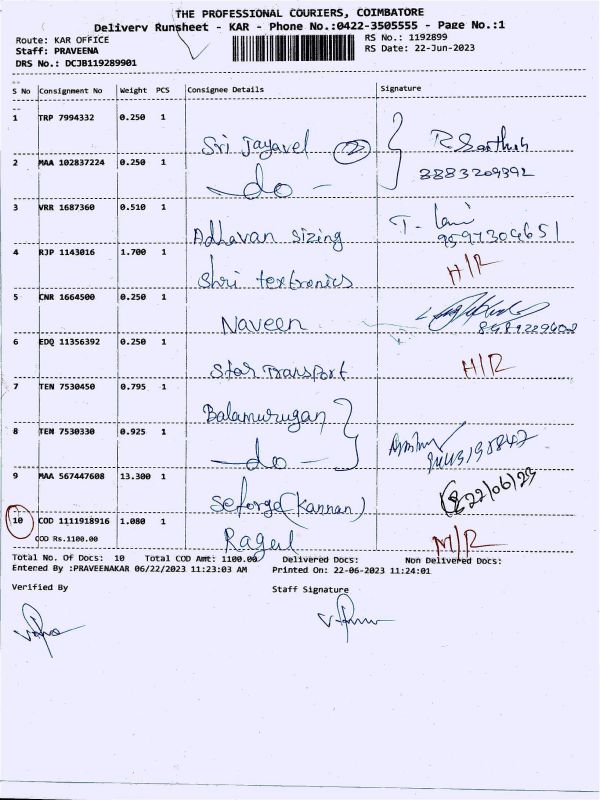 THE PROFESSIONAL COURIERS, COIMBATORE
Delivery Runsheet - KAR - Phone No.:0422-3505555 - Page No.:1
Route: KAR OFFICE RS No.: 1192899
Staff: PRAVEENA RS Date: 22-Jun-2023
DRS No.: DCJB119289901
S No Consignment No Weight PCS Consignee Details Signature
1 TRP 7994332 0.250 1
Sri Jayavel 2
8883209392
2 MAA 102837224 0.250 1
do
3 VRR 1687360 0.510 1
Adhavan sizing T.
9597304651
4 RJP 1143016 1.700 1
Shri textronics H/R
5 CNR 1664500 0.250 1
Naveen
6 EDQ 11356392 0.250 1
Star Transport H/R
7 TEN 7530450 0.795 1
Balamurugan
8 TEN 7530330 0.925 1
do
9 MAA 567447608 13.300 1
Seforge (Kannan) 22/06/23
10 COD 1111918916 1.080 1
COD Rs.1100.00
Ragul M/R
Total No. Of Docs: 10 Total COD Amt: 1100.00 Delivered Docs: Non Delivered Docs:
Entered By :PRAVEENAKAR 06/22/2023 11:23:03 AM Printed On: 22-06-2023 11:24:01
Verified By Staff Signature